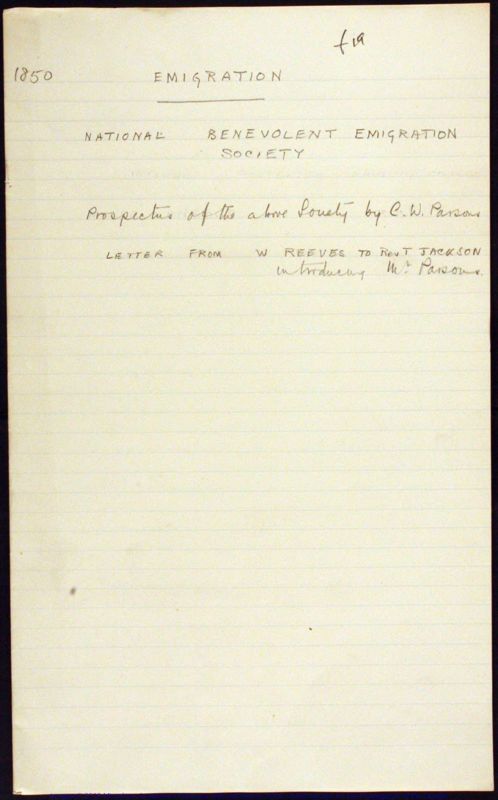 f19
1850 EMIGRATION
NATIONAL BENEVOLENT EMIGRATION
SOCIETY
Prospectus of the above Society by C. W. Parsons
LETTER FROM W REEVES TO Rev T JACKSON
introducing Mr Parsons.